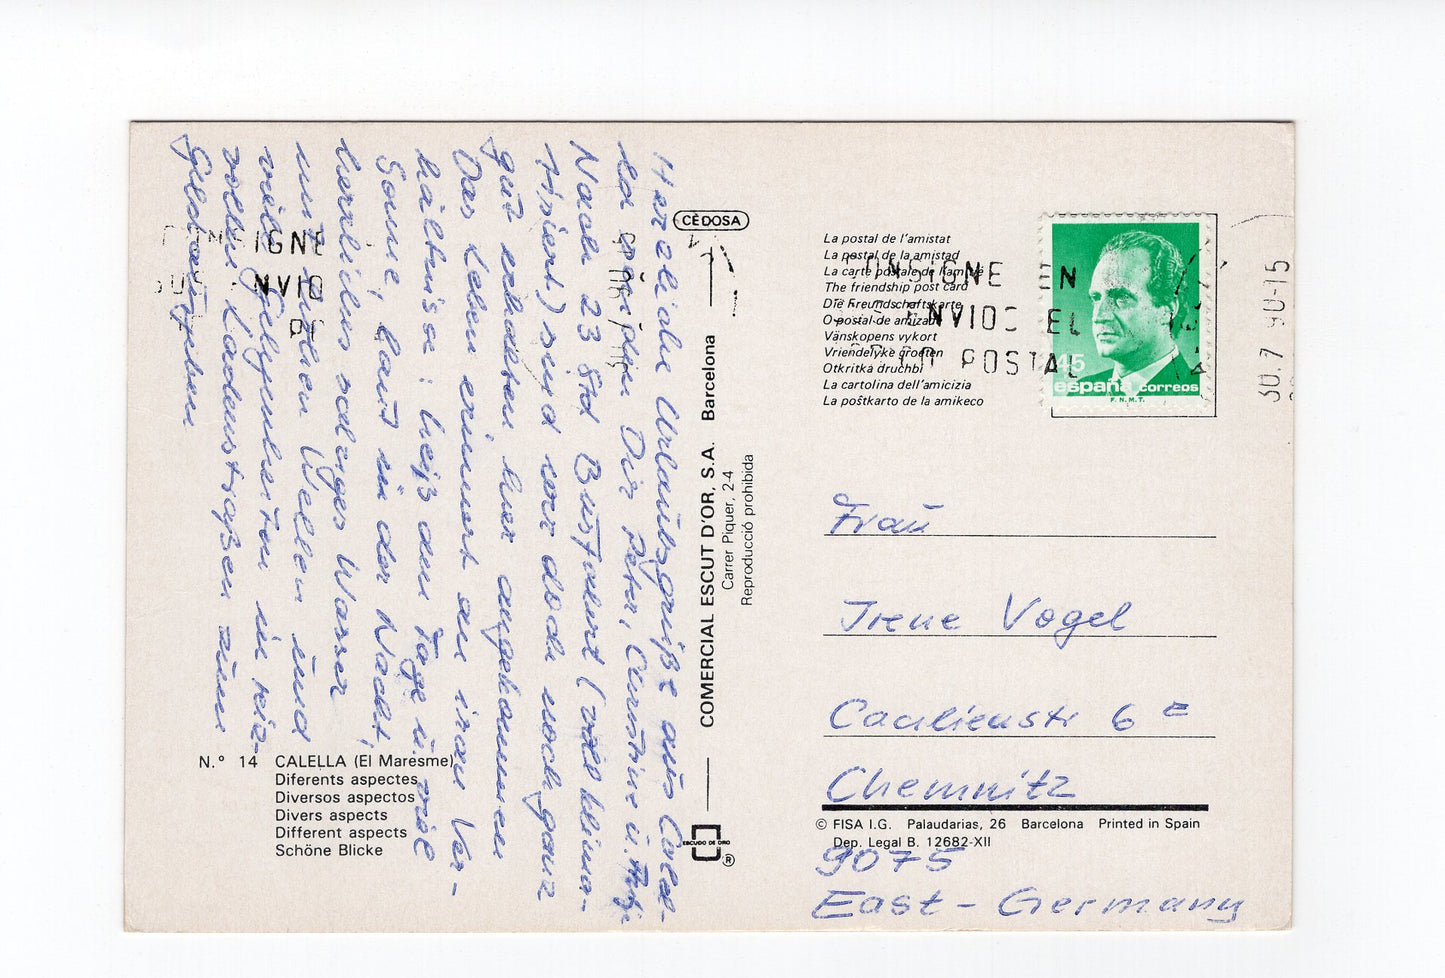 Herzliche Urlaubsgrüße aus Calel-
la senden Dir Peter, Christine u. Antje
Nach 23 Std Busfahrt (voll klima-
tisiert) sind wir doch noch ganz
gut erhalten hier angekommen
Das Leben erinnert an iran Ver-
hältnisse: heiß am Tage u. viel
Sonne, laut in der Nacht,
herrliches salziges Wasser
mit tollen Wellen und
viel Gelegenheiten in reiz-
vollen Ladenstraßen zum
Geldausgeben
CÈDOSA
COMERCIAL ESCUT D'OR, S.A. Barcelona
Carrer Piquer, 2-4
Reproducció prohibida
ESCUDO DE ORO
®
N.° 14 CALELLA (El Maresme)
Diferents aspectes
Diversos aspectos
Divers aspects
Different aspects
Schöne Blicke
La postal de l'amistat
La postal de la amistad
La carte postale de l'amitié
The friendship post card
Die Freundschaftskarte
O postal de amizade
Vänskopens vykort
Vriendelyke groeten
Otkritka druchbi
La cartolina dell'amicizia
La poŝtkarto de la amikeco
CONSIGNE EN
SUS ENVIOS EL
POSTAL
30.7 90-15
45
españa correos
F.N.M.T.
Frau
Irene Vogel
Cäcilienstr 6 E
Chemnitz
© FISA I.G. Palaudarias, 26 Barcelona Printed in Spain
Dep. Legal B. 12682-XII
9075
East - Germany